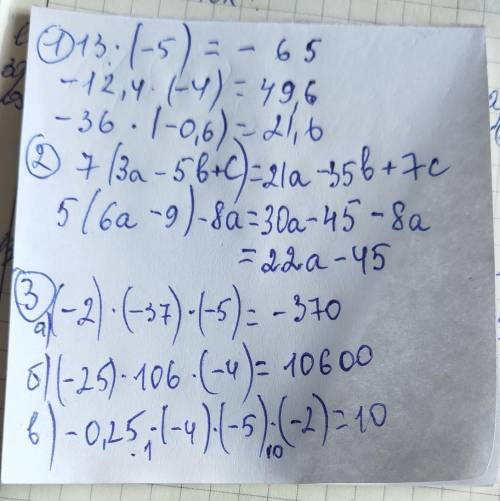 ① 13 · (-5) = - 65
-12,4 · (-4) = 49,6
-36 · (-0,6) = 21,6
② 7(3a - 5b + c) = 21a - 35b + 7c
5(6a - 9) - 8a = 30a - 45 - 8a
= 22a - 45
③
а) (-2) · (-37) · (-5) = -370
б) (-25) · 106 · (-4) = 10600
в) -0,25 · (-4) · (-5) · (-2) = 10
1 10